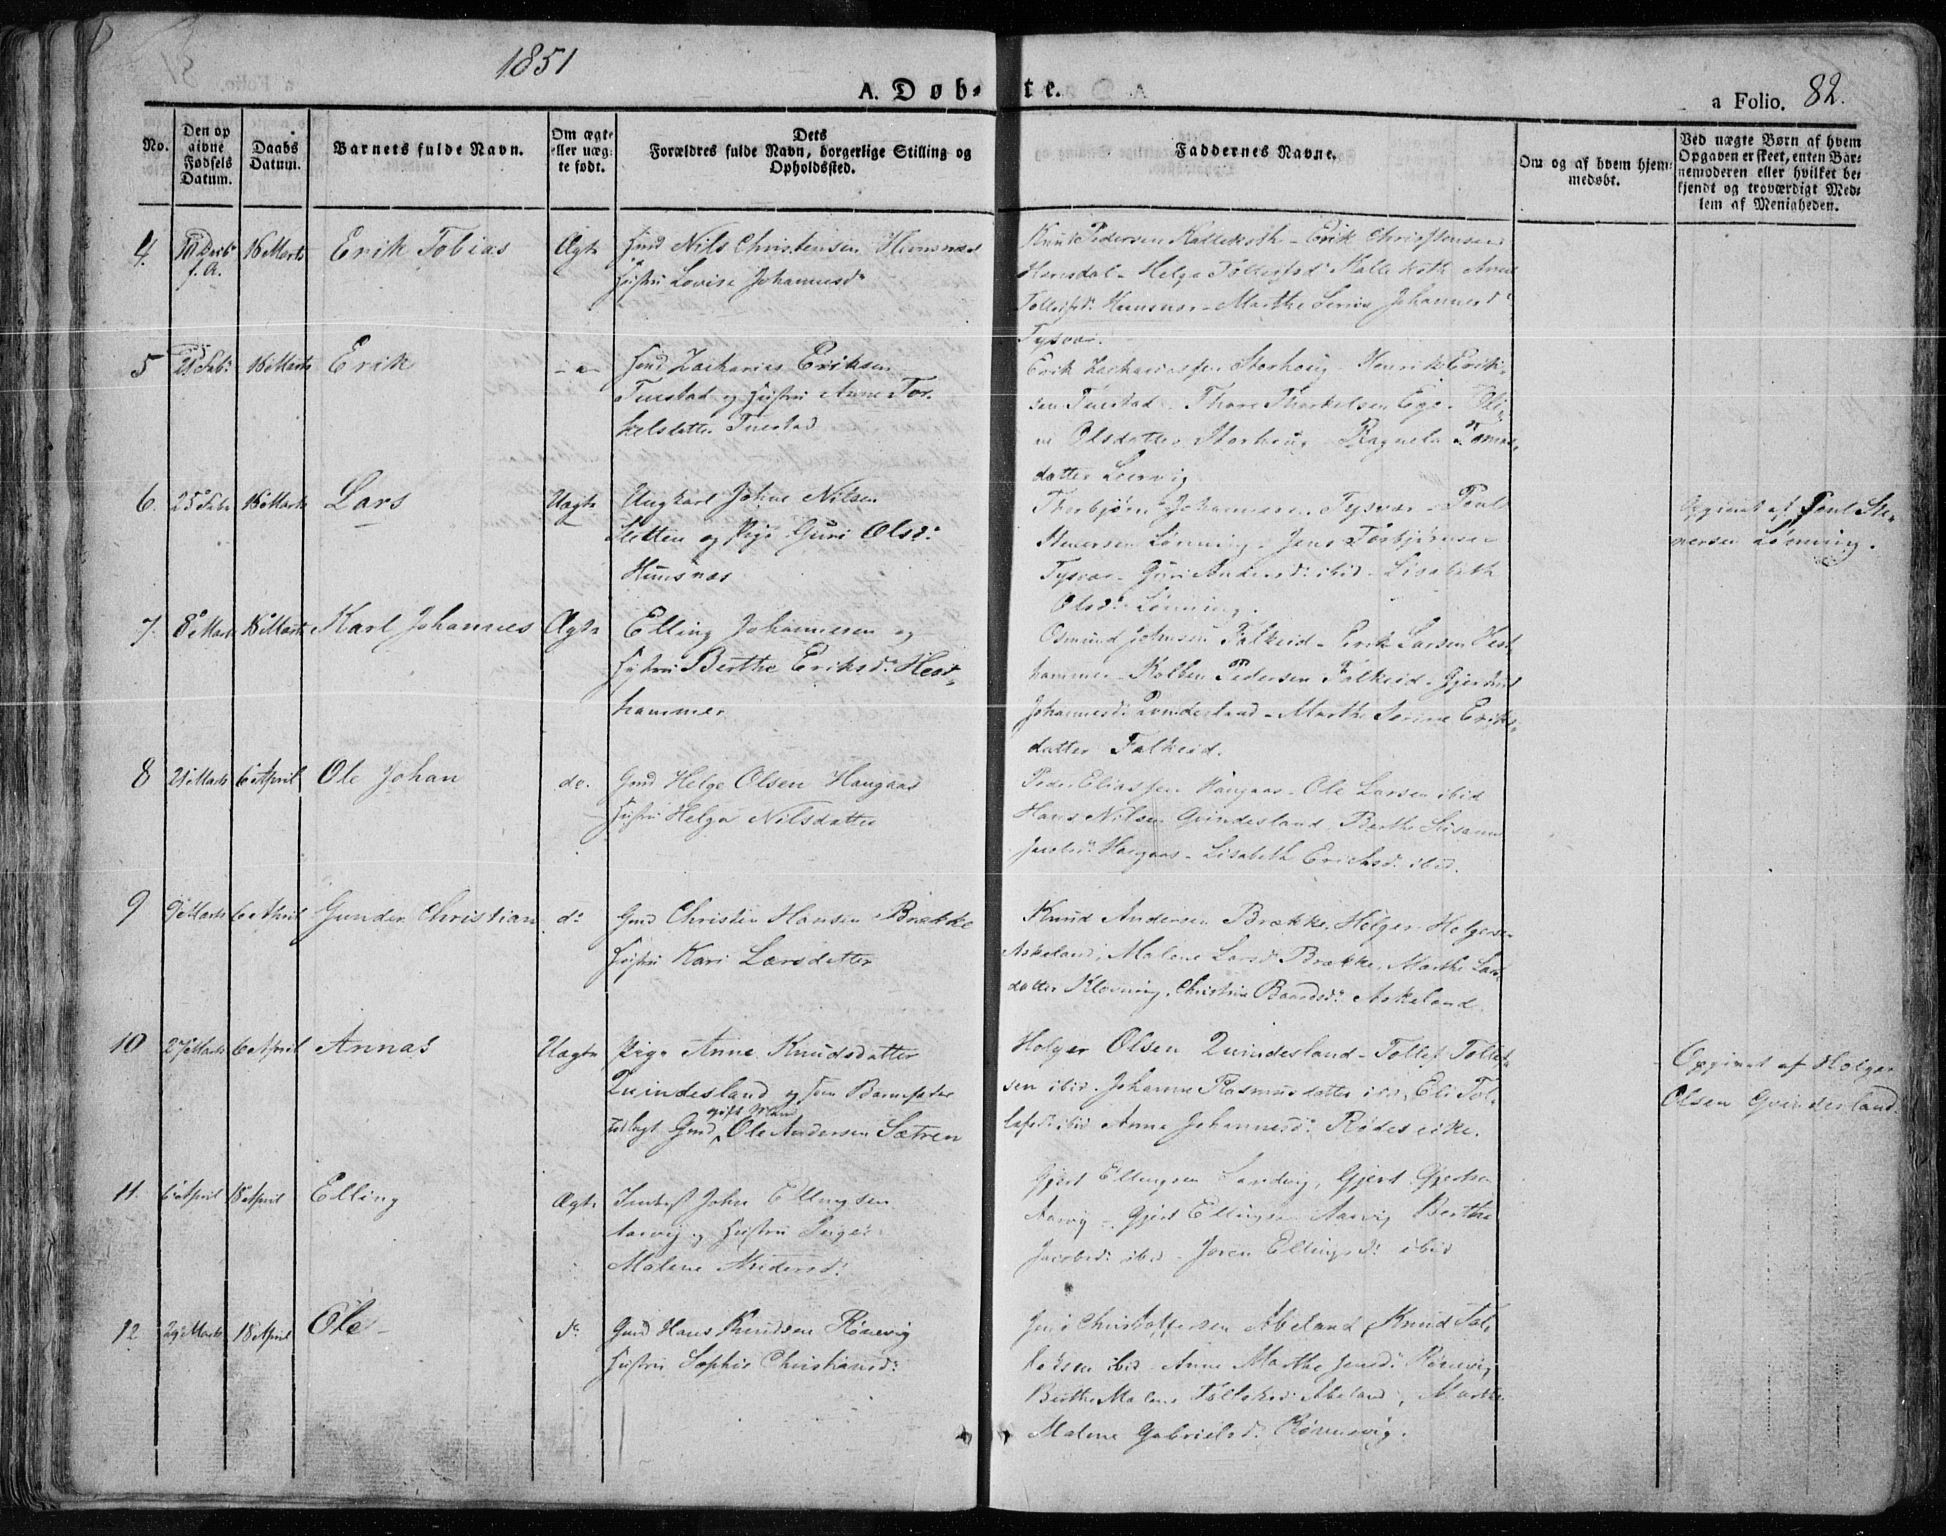 1851
A. Døb-
te.
a Folio. 82.
No.
Den op
givne
Fødsels
Datum.
Daabs
Datum.
Barnets fulde Navn.
Om ægte
eller uæg-
te født.
Dets
Forældres fulde Navn, borgerlige Stilling og
Opholdssted.
Faddernes Navne.
Om og af hvem hjem-
medøbt.
Ved uægte Børn af hvem
Opgaven er skeet, enten Bar-
nemoderen eller hvilket be-
kjendt og troværdigt Med-
lem af Menigheden.
4. 16 Marts Erik Tobias Ægte Nils Christensen Hunsnæs
Hustru Lovise Johannesd:
Knud Pedersen - Erik Christensen
- Helga
Hunsnæs - Marthe Johannesd:
Tysvær.
5 Feb: 16 Marts Erik Zacharias Eriksen
Tuestad og Hustru Anne Tor-
kelsdatter Tuestad
Erik Zachariassen Storhoug - Henrik Erik-
sen Tuestad. Thore Thorkelsen
Olsdatter Storhoug
datter
6. 25 Feb: 16 Marts Lars Uægte Ungkarl Johne Nilsen
Sletten og Pige Guri Olsd:
Hunsnæs
Thorbjørn Johannesen Tysvær -
Stenersen Lønning. Jens Torbjørnsen
Tysvær - Guri Andersd: ibid - Lisabeth
Olsd: Lønning.
Opgivet af Poul Ste-
nersen Lønning.
7. 8 Marts 16 Marts Karl Johannes Ægte Elling Johannesen og
Hustru Berthe Eriksd: Hest-
hammer
Osmund Johnsen Falkeid - Erik Larsen Hest
hammer - Pedersen Falkeid - Gjertrud
Johannesd: - Marthe Serine Eriks-
datter Falkeid.
8 21 Marts 6 April Ole Johan do. Gmd Helge Olsen Haugaas
Hustru Helga Nilsdatter
Peder Eliassen Haugaas - Ole Larsen ibid
Hans Nilsen Qvindesland. Berthe
Jacobsd: Haugaas - Lisabeth Erichsd: ibid.
9 9 Marts 6 April Gunder Christian do Gmd Christen Hansen Brække
Hustru Kari Larsdatter
Knud Andersen Brække. Holger Holgersen
Askeland, Malene Larsd: Brække, Marthe Lars-
datter Klovning, Christine Baardsd: Askeland
10 27 Marts 6 April Annas Uægte Pige Anne Knudsdatter
Quindesland og som Barnefader
udlagt Gmd gift Mand Ole Andersen Sætren
Holger Olsen Quindesland - Tollef Tollef-
sen ibid. Johanne Rasmusdatter ibid, Eli Tol-
lefsd: ibid Anna Johannesd:
Opgivet af Holger
Olsen Qvindesland.
11. 6 April 18 April Elling Ægte John Ellingsen
Aarvig og Hustru
Malene Andersd:
Gjert Ellingsen Sandvig, Gjert Gjertsen
Aarvig - Gjert Ellingsen Aarvig Berthe
Jacobsd: ibid - Joren Ellingsd: ibid
12 29 Marts 18 April Ole do Gmd Hans Knudsen Rønevig
Hustru Sophie Christiansd:
Jens Christoffersen Abeland, Knud
ibid - Anne Marthe Jensd: Rønevig
Berthe Malene Abeland, Marthe
Malene Gabrielsd: Rønnevig.